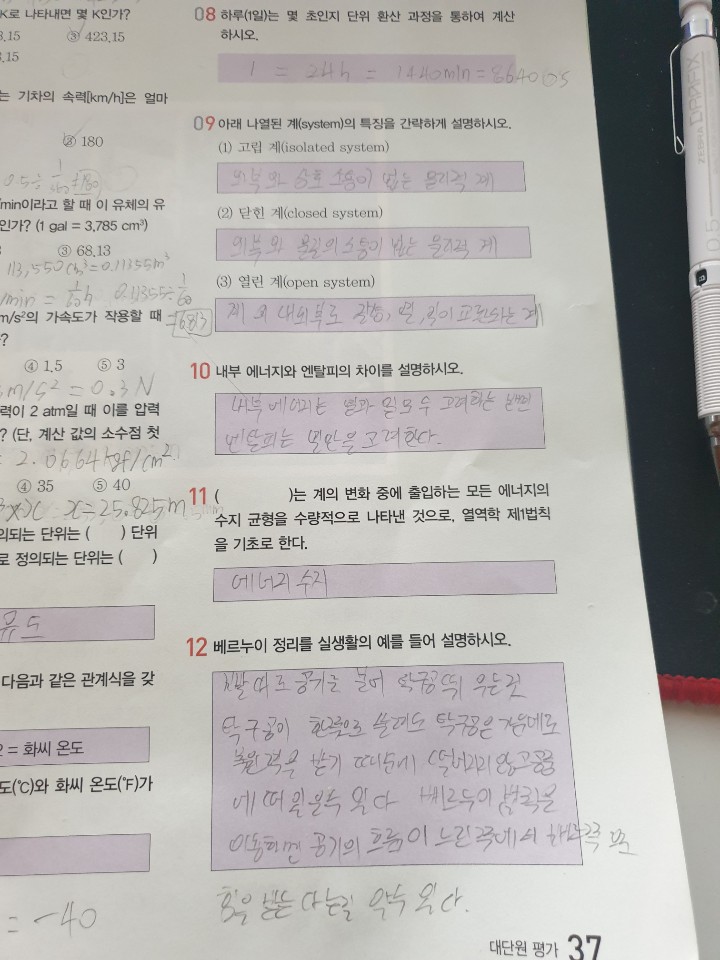 K로 나타내면 몇 K인가?
3.15
③ 423.15
3.15
는 기차의 속력[km/h]은 얼마
③ 180
0.5÷
/min이라고 할 때 이 유체의 유
인가? (1 gal = 3,785 cm³)
③ 68.13
113,550cm³=0.11355m³
/min = 1/60 h 0.11355÷1/60
m/s²의 가속도가 작용할 때
=6.813
?
④ 1.5 ⑤ 3
m/s² = 0.3 N
력이 2 atm일 때 이를 압력
? (단, 계산 값의 소수점 첫
= 2.0664kgf/cm²
④ 35 ⑤ 40
x=25.825m
의되는 단위는 ( ) 단위
로 정의되는 단위는 ( )
유도
다음과 같은 관계식을 갖
= 화씨 온도
도(℃)와 화씨 온도(℉)가
= -40
08 하루(1일)는 몇 초인지 단위 환산 과정을 통하여 계산
하시오.
1 = 24h = 1440min = 86400s
09 아래 나열된 계(system)의 특징을 간략하게 설명하시오.
(1) 고립 계(isolated system)
외부와 상호 작용이 없는 물리적 계
(2) 닫힌 계(closed system)
외부와 물질의 소통이 없는 물리적 계
(3) 열린 계(open system)
계의 내외부로 질량, 열, 일이 는 계
10 내부 에너지와 엔탈피의 차이를 설명하시오.
내부 에너지는 열과 일 모두 고려하는 반면
엔탈피는 열만을 고려한다.
11 ( )는 계의 변화 중에 출입하는 모든 에너지의
수지 균형을 수량적으로 나타낸 것으로, 열역학 제1법칙
을 기초로 한다.
에너지 수지
12 베르누이 정리를 실생활의 예를 들어 설명하시오.
빨대로 공기를 불어 탁구공 띄우는 것
탁구공이 한쪽으로 쏠려도 탁구공은 제대로
복원력을 받기 때문에 떨어지지 않고 공중
에 떠 있을 수 있다 베르누이 법칙은
이동하면 공기의 흐름이 느린 쪽에서 쪽
힘을 받는다는걸 알 수 있다.
대단원 평가 37
ZEBRA DRAFIX 0.5